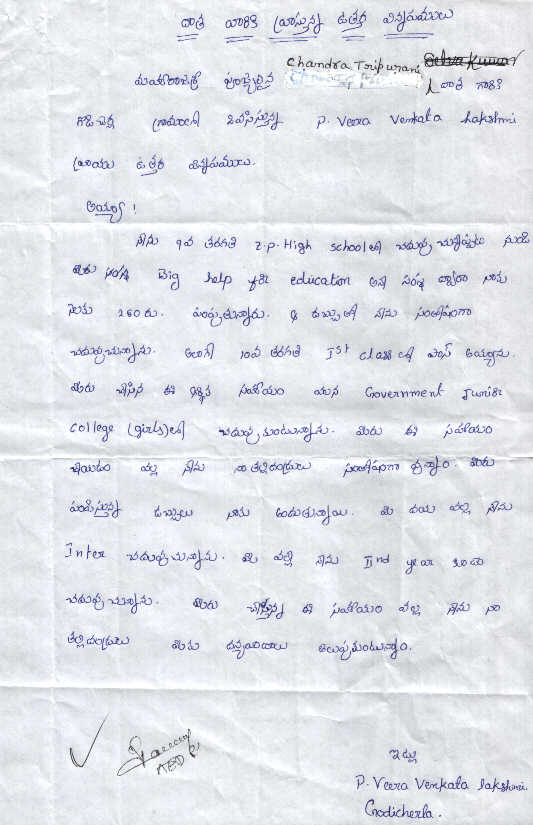 దాత వారికి వ్రాస్తున్న ఉత్తర విన్నపములు
Chandra Tripurani
మహారాజశ్రీ పూజ్యులైన దాత గారికి
గొడిచర్ల గ్రామంలో నివసిస్తున్న P. Veera Venkata Lakshmi
వ్రాయు ఉత్తర విన్నపములు.
అయ్యా!
నేను 9వ తరగతి Z.P. High school లో చదువు చున్నప్పటి నుండి
మీరు నాకు Big help for education అను సంస్థ ద్వారా నాకు
నెలకు 260 రు. పంపుతున్నారు. ఆ డబ్బుతో నేను సంతోషంగా
చదువుచున్నాను. అలాగే 10వ తరగతి Ist class లో పాస్ అయ్యాను.
మీరు చేసిన ఈ సహాయం వలన Government Junior
college (girls) లో చదువుకుంటున్నాను. మీరు ఈ సహాయం
చేయడం వల్ల నేను నా తల్లిదండ్రులు సంతోషంగా ఉన్నాం. మీరు
పంపిస్తున్న డబ్బులు నాకు అందుతున్నాయి. మీ దయ వల్ల నేను
Inter చదువుచున్నాను. మీ వల్లే నేను IInd year కూడా
చదువుచున్నాను. మీరు చేస్తున్న ఈ సహాయం వల్ల నేను నా
తల్లిదండ్రులు మీకు ధన్యవాదాలు తెలుపుకుంటున్నాం.
ఇట్లు
P. Veera Venkata lakshmi.
Godicherla.